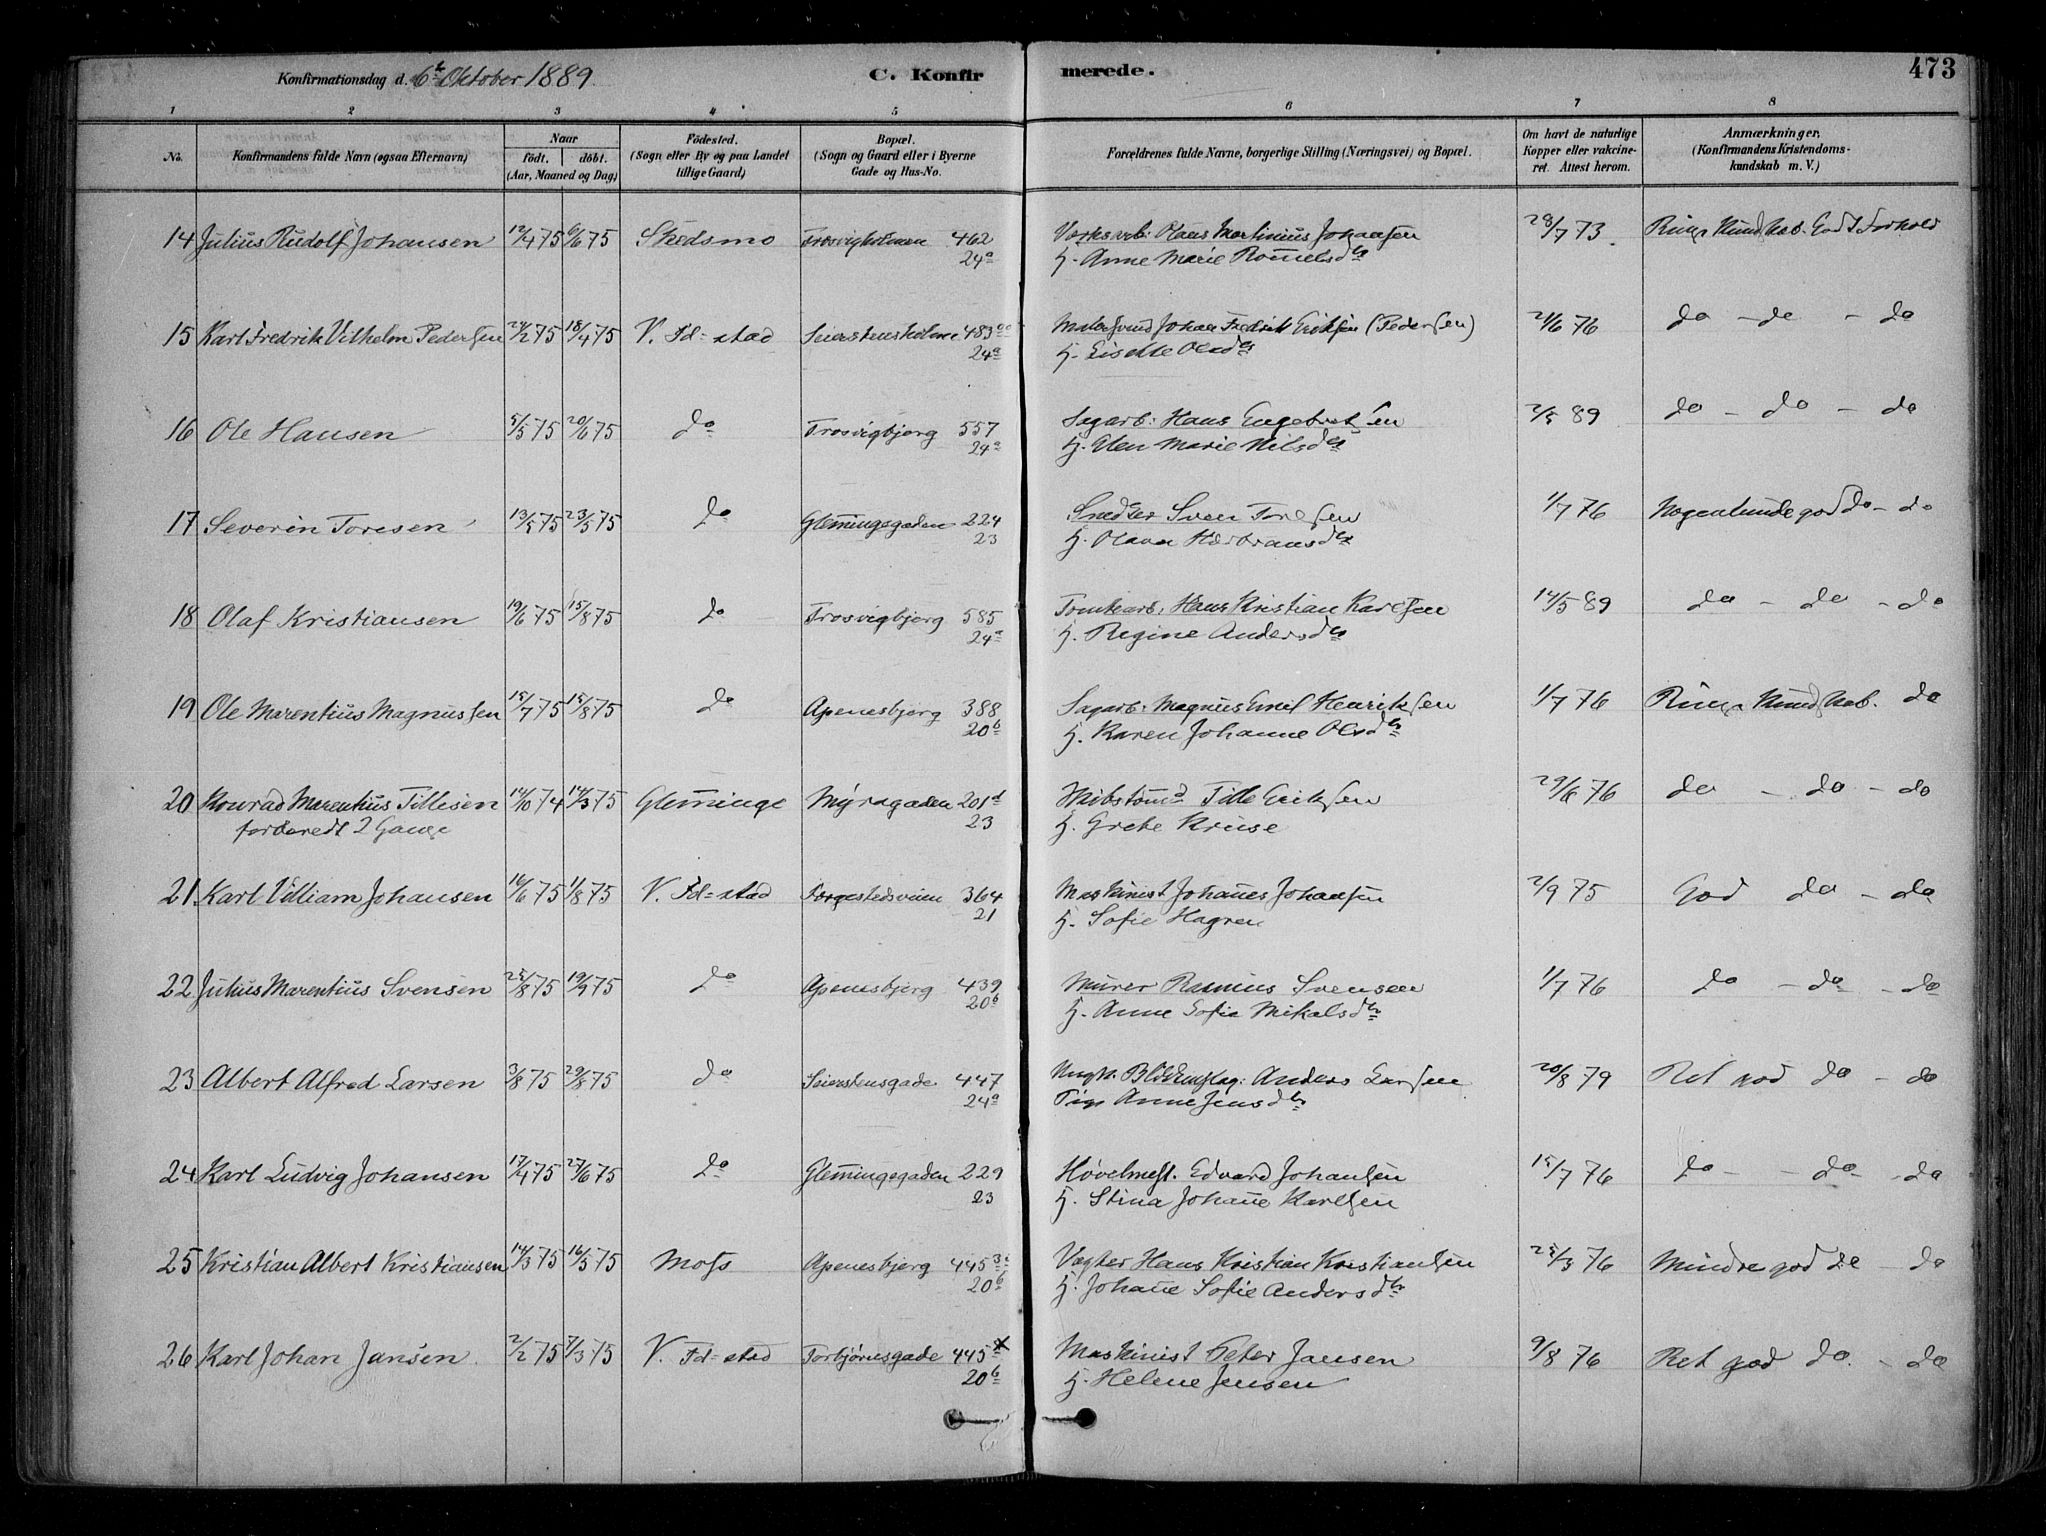 Konfirmationsdag d. 6te Oktober 1889. C. Konfirmerede. 473
1 2 3 4 5 6 7 8
No. Konfirmandens fulde Navn (ogsaa Efternavn) Naar født. døbt. (Aar, Maaned og Dag) Fødested. (Sogn eller By og paa Landet tillige Gaard) Bopæl. (Sogn og Gaard eller i Byerne Gade og Hus-No. Forældrenes fulde Navne, borgerlige Stilling (Næringsvei) og Bopæl. Om havt de naturlige Kopper eller vakcineret. Attest herom. Anmærkninger. (Konfirmandens Kristendomskundskab m. V.)
14 Julius Rudolf Johansen 12/4 75 6/6 75 Skedsmo Trosvigholmen 462 Værksarb. Olaus Martinius Johansen 28/7 73. Ringe Kundskab. Godt Forhold
24a H. Anne Marie Romelsdtr
15 Karl Fredrik Vilhelm Pedersen 24/2 75 18/4 75 V. Fd=stad Seierstensholme 483 Johan Fredrik Eriksen (Pedersen) 21/6 76 do - do - do
24a H. Lisette Olsdtr
16 Ole Hansen 5/5 75 20/6 75 do Trosvigbjerg 557 Sagarb: Hans Engebretsen 2/5 89 do - do - do
24a H. Elen Marie Nilsdtr
17 Severin Toresen 13/5 75 23/5 75 do Glemingegaden 224 Sneker Sven Toresen 1/7 76 Nogenlunde god do - do
23 H. Olava
18 Olaf Kristiansen 19/6 75 15/8 75 do Trosvigbjerg 585 Tomtearb. Hans Kristian Karlsen 14/5 89 do - do - do
24a H. Regine Andersdtr
19 Ole Marentius Magnussen 15/7 75 15/8 75 do Apenesbjerg 388 Sagarb. Magnus Emil Henriksen 1/7 76 Ringe Kundskab. do
20b H. Karen Johanne Olsdtr
20 Konrad Marentius Tillisen 14/10 74 14/3 75 Gleminge Myragaden 201d Skibstømd Tille Eriksen 29/6 76 do - do - do
forberedt 2 Gange 23 H. Grete Kruse
21 Karl Villiam Johansen 16/6 75 1/8 75 V. Fd=stad Færgestedsveien 364 Maskinist Johanes Johansen 2/9 75 God do - do
21 H. Sofie Hagren
22 Julius Marentius Svensen 25/8 75 19/9 75 do Apenesbjerg 439 Murer Rasmus Svensen 1/7 76 do - do - do
20b H. Anne Sofie Mikalsdtr
23 Albert Alfred Larsen 3/8 75 29/8 75 do Seierstensgade 447 Anders Larsen 20/8 79 Ret god do - do
24a Pige Anne Jensdtr
24 Karl Ludvig Johansen 17/4 75 27/6 75 do Glemingegaden 229 Høvelmest. Edvard Johansen 15/7 76 do - do - do
23 H. Stina Johane Karlsen
25 Kristian Albert Kristiansen 14/3 75 16/5 75 Moss Apenesbjerg 445 Vægter Hans Kristian Kristiansen 25/3 76 Mindre god do - do
20b H. Johane Sofie Andersdtr
26 Karl Johan Jansen 2/2 75 7/3 75 V. Fd=stad Torbjørnsgade 445 x Maskinist Peter Jansen 9/8 76 Ret god do. - do
20b H. Helene Jensen